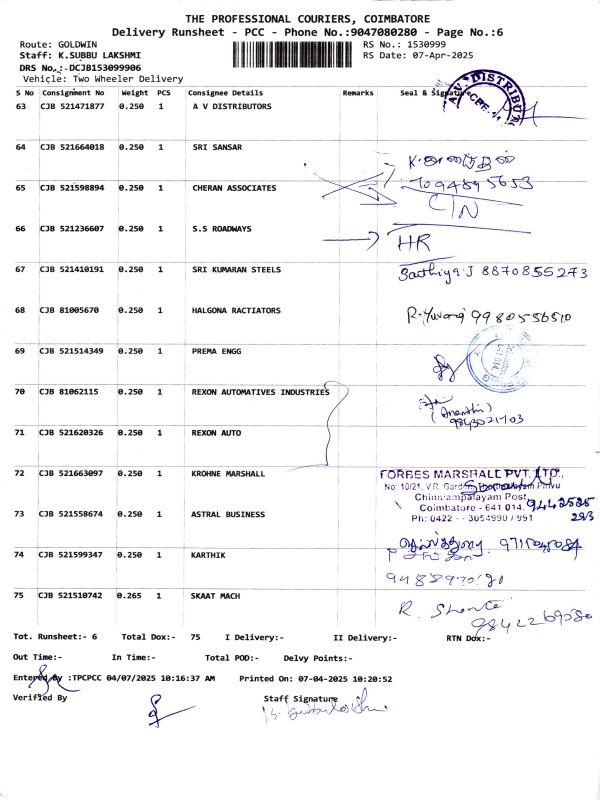 THE PROFESSIONAL COURIERS, COIMBATORE
Delivery Runsheet - PCC - Phone No.:9047080280 - Page No.:6
Route: GOLDWIN RS No.: 1530999
Staff: K.SUBBU LAKSHMI RS Date: 07-Apr-2025
DRS No.:-DCJB153099906
Vehicle: Two Wheeler Delivery
S No Consignment No Weight PCS Consignee Details Remarks Seal & Signature
63 CJB 521471877 0.250 1 A V DISTRIBUTORS
A.V. DISTRIBU
CBE-14
64 CJB 521664018 0.250 1 SRI SANSAR
65 CJB 521598894 0.250 1 CHERAN ASSOCIATES
7094895653
C/N
66 CJB 521236607 0.250 1 S.S ROADWAYS
HR
67 CJB 521410191 0.250 1 SRI KUMARAN STEELS
Sathiya.J 8870855273
68 CJB 81005670 0.250 1 HALGONA RACTIATORS
9980556510
69 CJB 521514349 0.250 1 PREMA ENGG
70 CJB 81062115 0.250 1 REXON AUTOMATIVES INDUSTRIES
(Ananthi)
9843021703
71 CJB 521620326 0.250 1 REXON AUTO
72 CJB 521663097 0.250 1 KROHNE MARSHALL
FORBES MARSHALL PVT. LTD.,
No: 10/21, V.R. Garden,
Chinniampalayam Post,
Coimbatore - 641 014.
Ph: 0422 - - 3054990 / 991
73 CJB 521558674 0.250 1 ASTRAL BUSINESS
74 CJB 521599347 0.250 1 KARTHIK
75 CJB 521510742 0.265 1 SKAAT MACH
9842269080
Tot. Runsheet:- 6 Total Dox:- 75 I Delivery:- II Delivery:- RTN Dox:-
Out Time:- In Time:- Total POD:- Delvy Points:-
Entered By :TPCPCC 04/07/2025 10:16:37 AM Printed On: 07-04-2025 10:20:52
Verified By Staff Signature